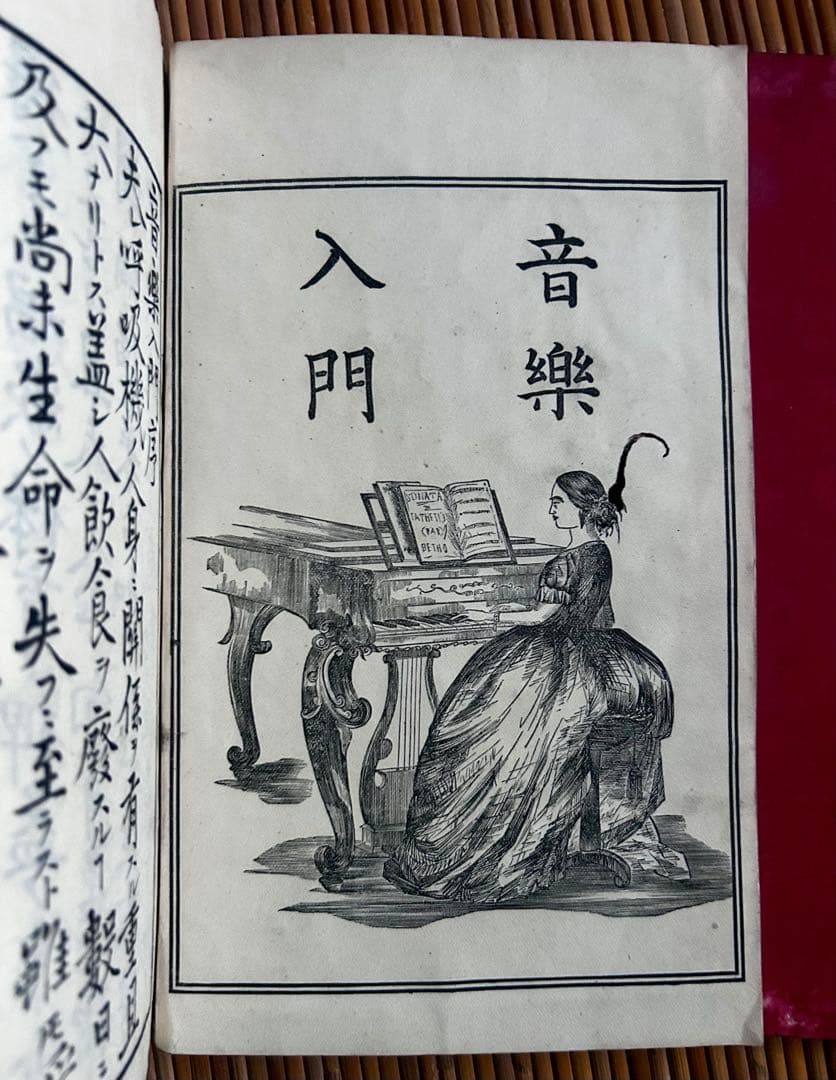 音樂
入門
SONATA
(PAR)
BETHO
音樂入門序
夫レ呼吸機ハ人身ニ關係ヲ有スル重且
大ナリトス蓋シ人飲食ヲ廢スルヿ數日ニ
及フモ尚未生命ヲ失フニ至ラスト雖モ